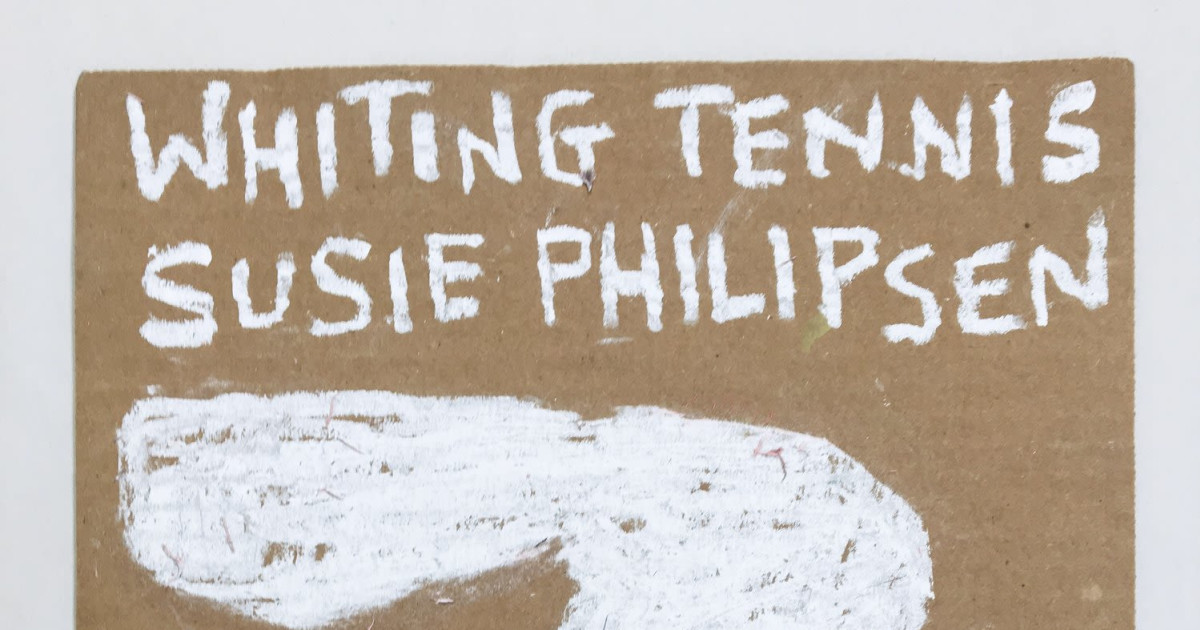 WHITING TENNIS
SUSIE PHILIPSEN